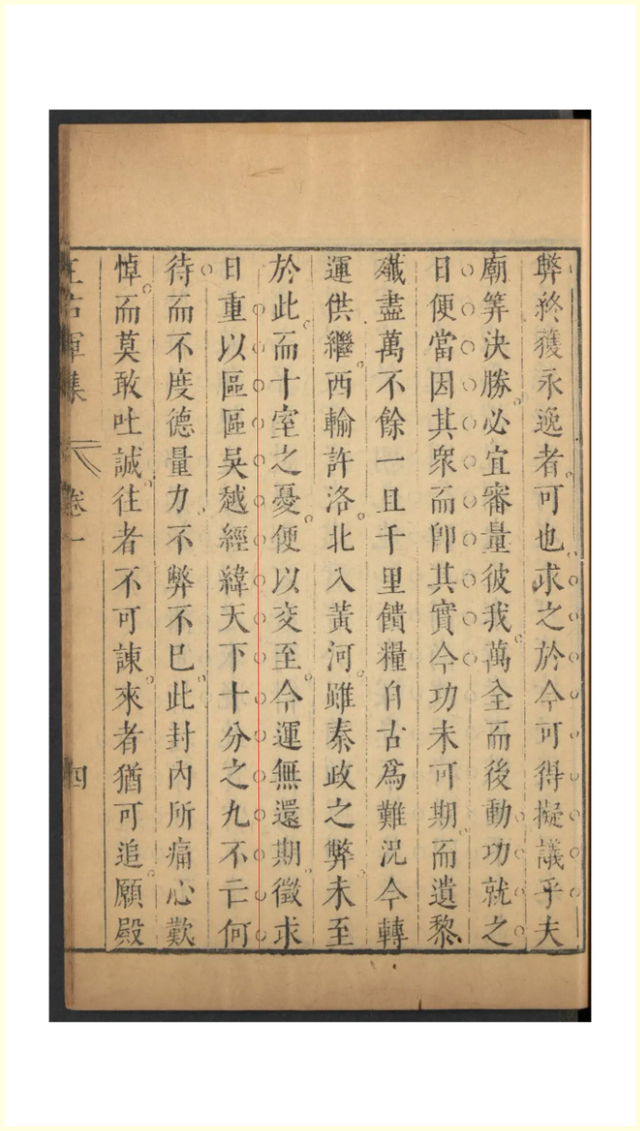 弊終獲永逸者可也求之於今可得擬議乎夫
廟筭決勝必宜審量彼我萬全而後動功就之
日便當因其衆而卽其實今功未可期而遺黎
殲盡萬不餘一且千里饋糧自古爲難況今轉
運供繼西輸許洛北入黃河雖秦政之弊未至
於此而十室之憂便以交至今運無還期徵求
日重以區區吳越經緯天下十分之九不亡何
待而不度德量力不弊不已此封內所痛心歎
悼而莫敢吐誠往者不可諫來者猶可追願殿
王右軍集 卷一 四